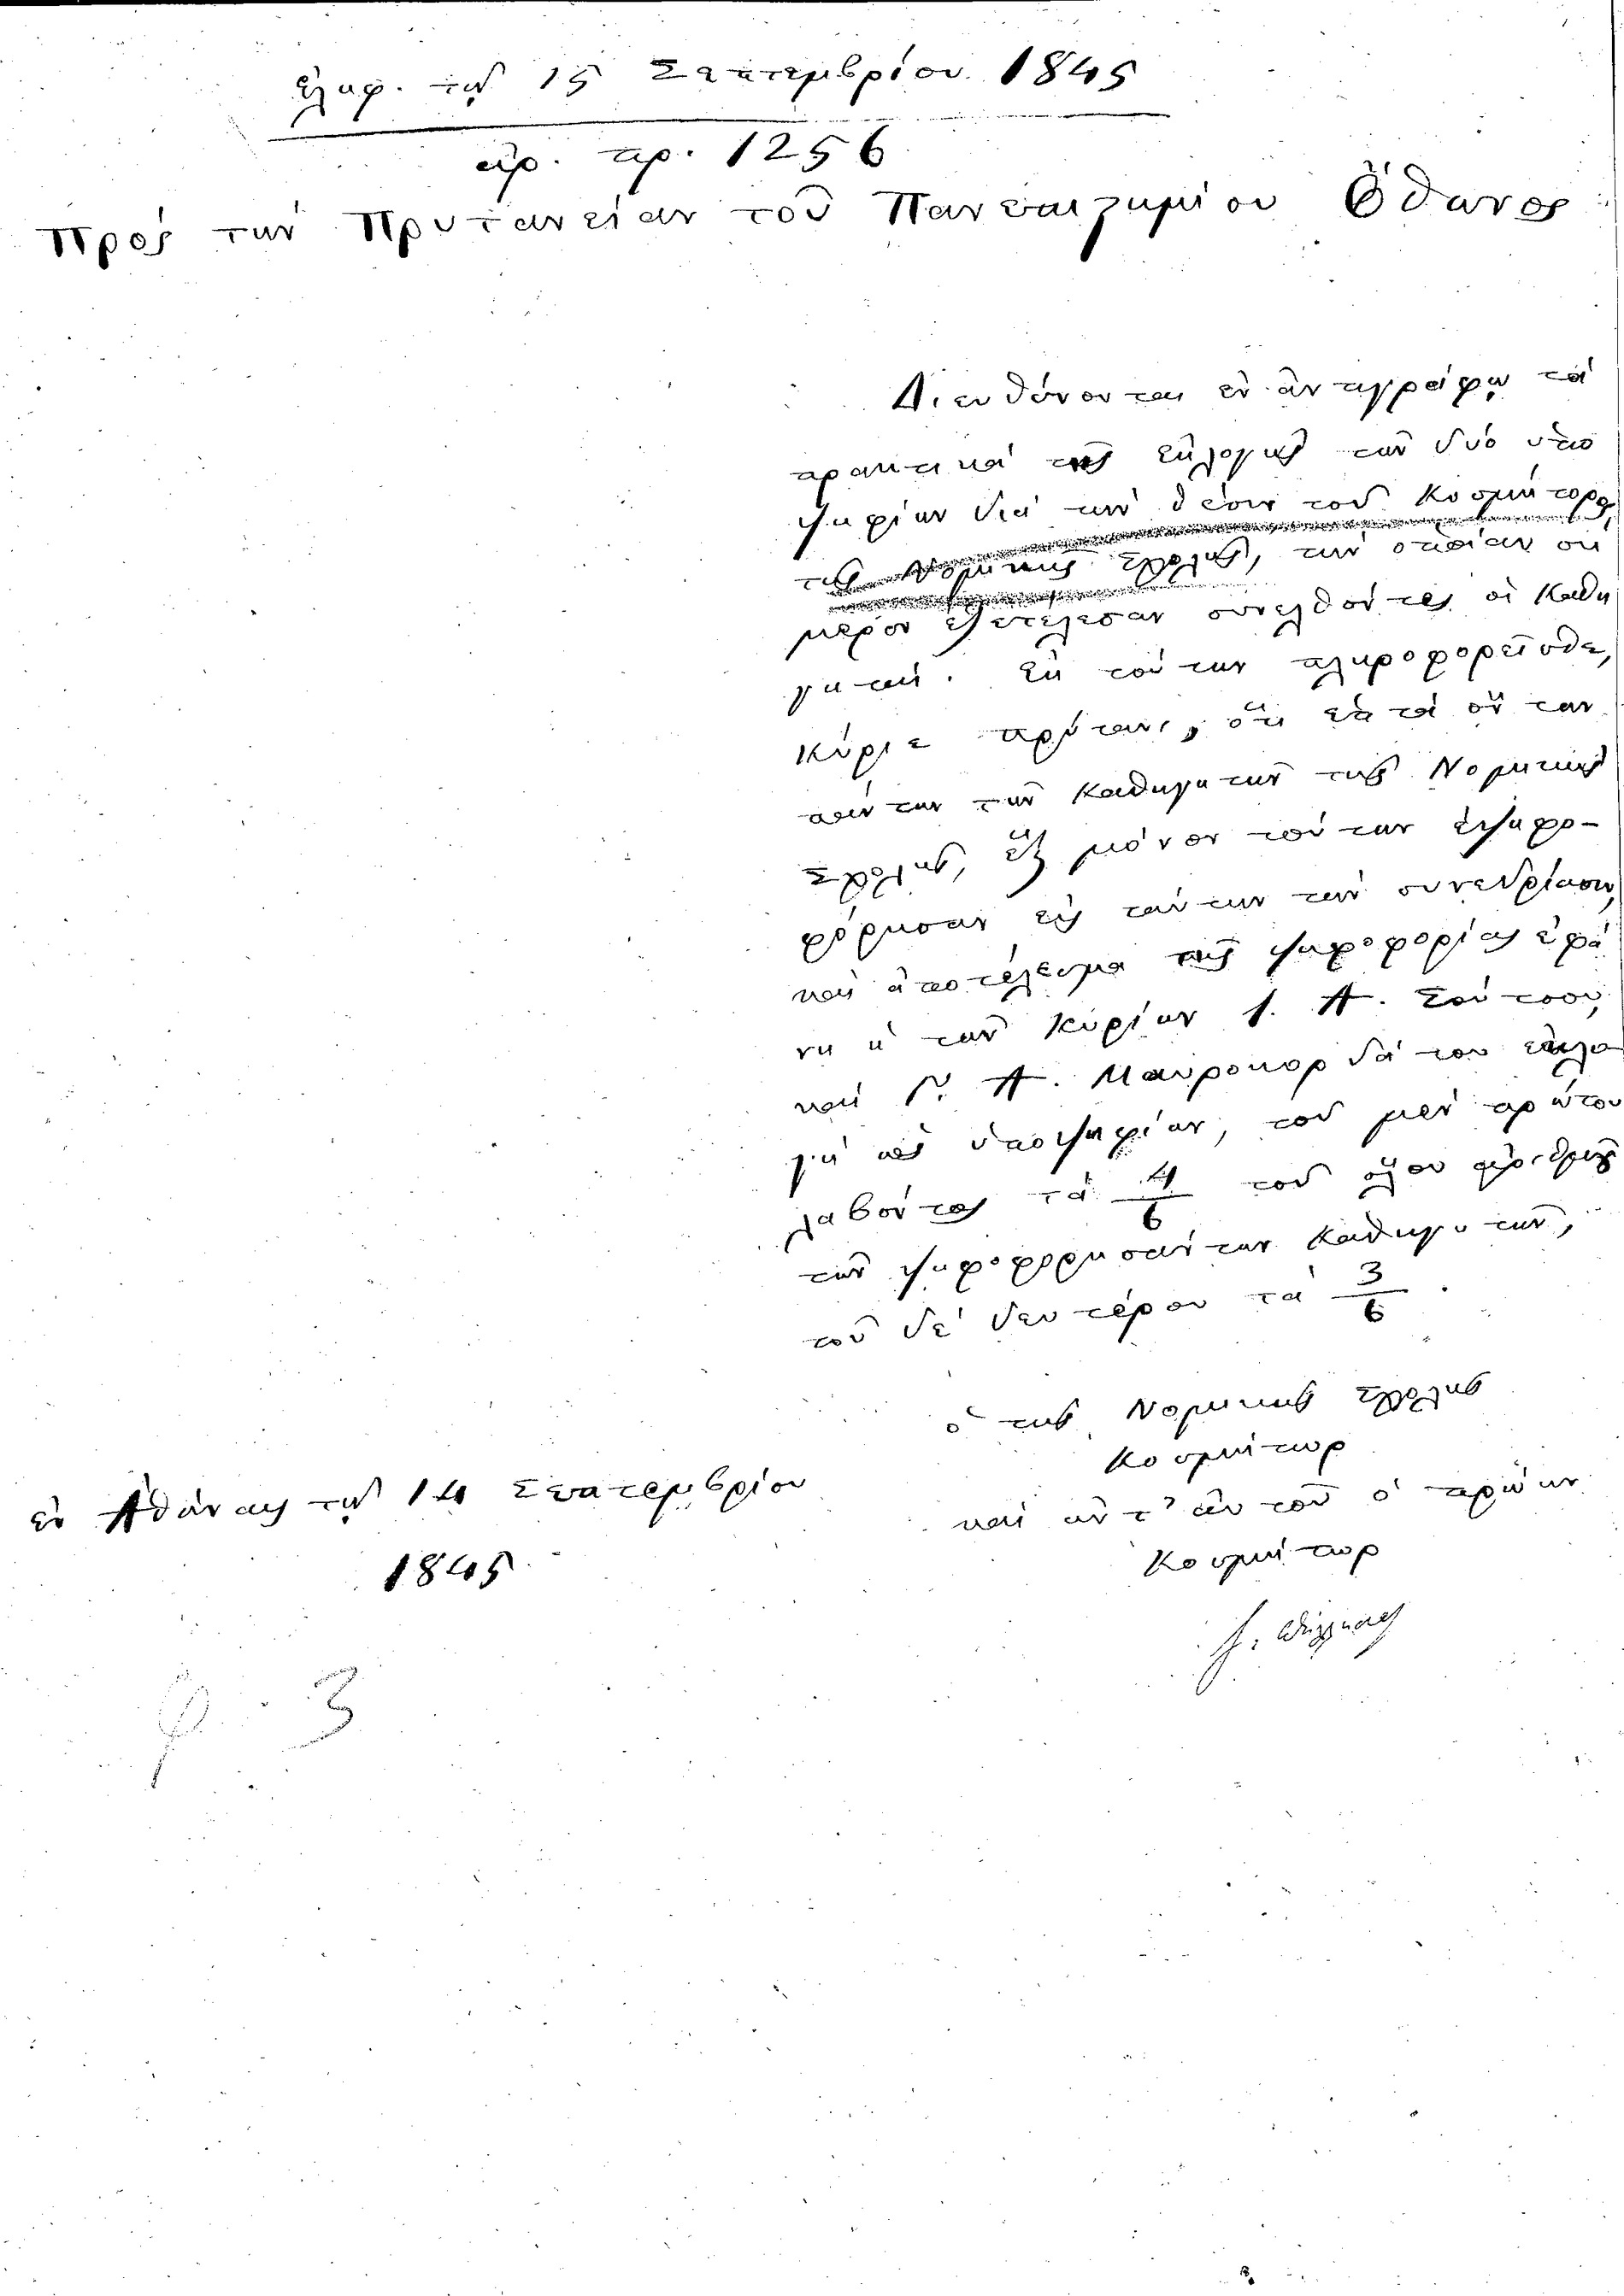 ἐλήφ. τῇ 15 Σεπτεμβρίου 1845
ἀρ. πρ. 1256
Πρὸς τὴν Πρυτανείαν τοῦ Πανεπιστημίου Ὄθωνος
Διευθύνονται ἐν ἀντιγράφῳ τὰ
πρακτικὰ τῆς ἐκλογῆς τῶν δύο ὑπο
ψηφίων διὰ τὴν θέσιν τοῦ Κοσμήτορος
τῆς Νομικῆς Σχολῆς, τὴν ὁποίαν σή
μερον ἐξετέλεσαν συνελθόντες οἱ Καθη
γηταί. Ἐκ τούτων πληροφορεῖσθε,
Κύριε πρύτανι, ὅτι ἑπτὰ ὄντων
πάντων τῶν Καθηγητῶν τῆς Νομικῆς
Σχολῆς, ἓξ μόνον τούτων ἐψηφο-
φόρησαν εἰς ταύτην τὴν συνεδρίασιν,
καὶ ἀποτέλεσμα τῆς ψηφοφορίας ἐφά
νη ἡ τῶν Κυρίων Ι. Α. Σούτσου,
καὶ Γ. Α. Μαυροκορδάτου ἐκλο
γὴ ὡς ὑποψηφίων, τοῦ μὲν πρώτου
λαβόντος τὰ 4/6 τοῦ ὅλου ἀριθμοῦ
τῶν ψηφοφορησάντων Καθηγητῶν,
τοῦ δὲ δευτέρου τὰ 3/6.
ὁ τῆς Νομικῆς Σχολῆς
Κοσμήτωρ
ἐν Ἀθήναις τῇ 14 Σεπτεμβρίου
1845
καὶ ἀντ' αὐτοῦ ὁ πρώην
Κοσμήτωρ
φ. 3